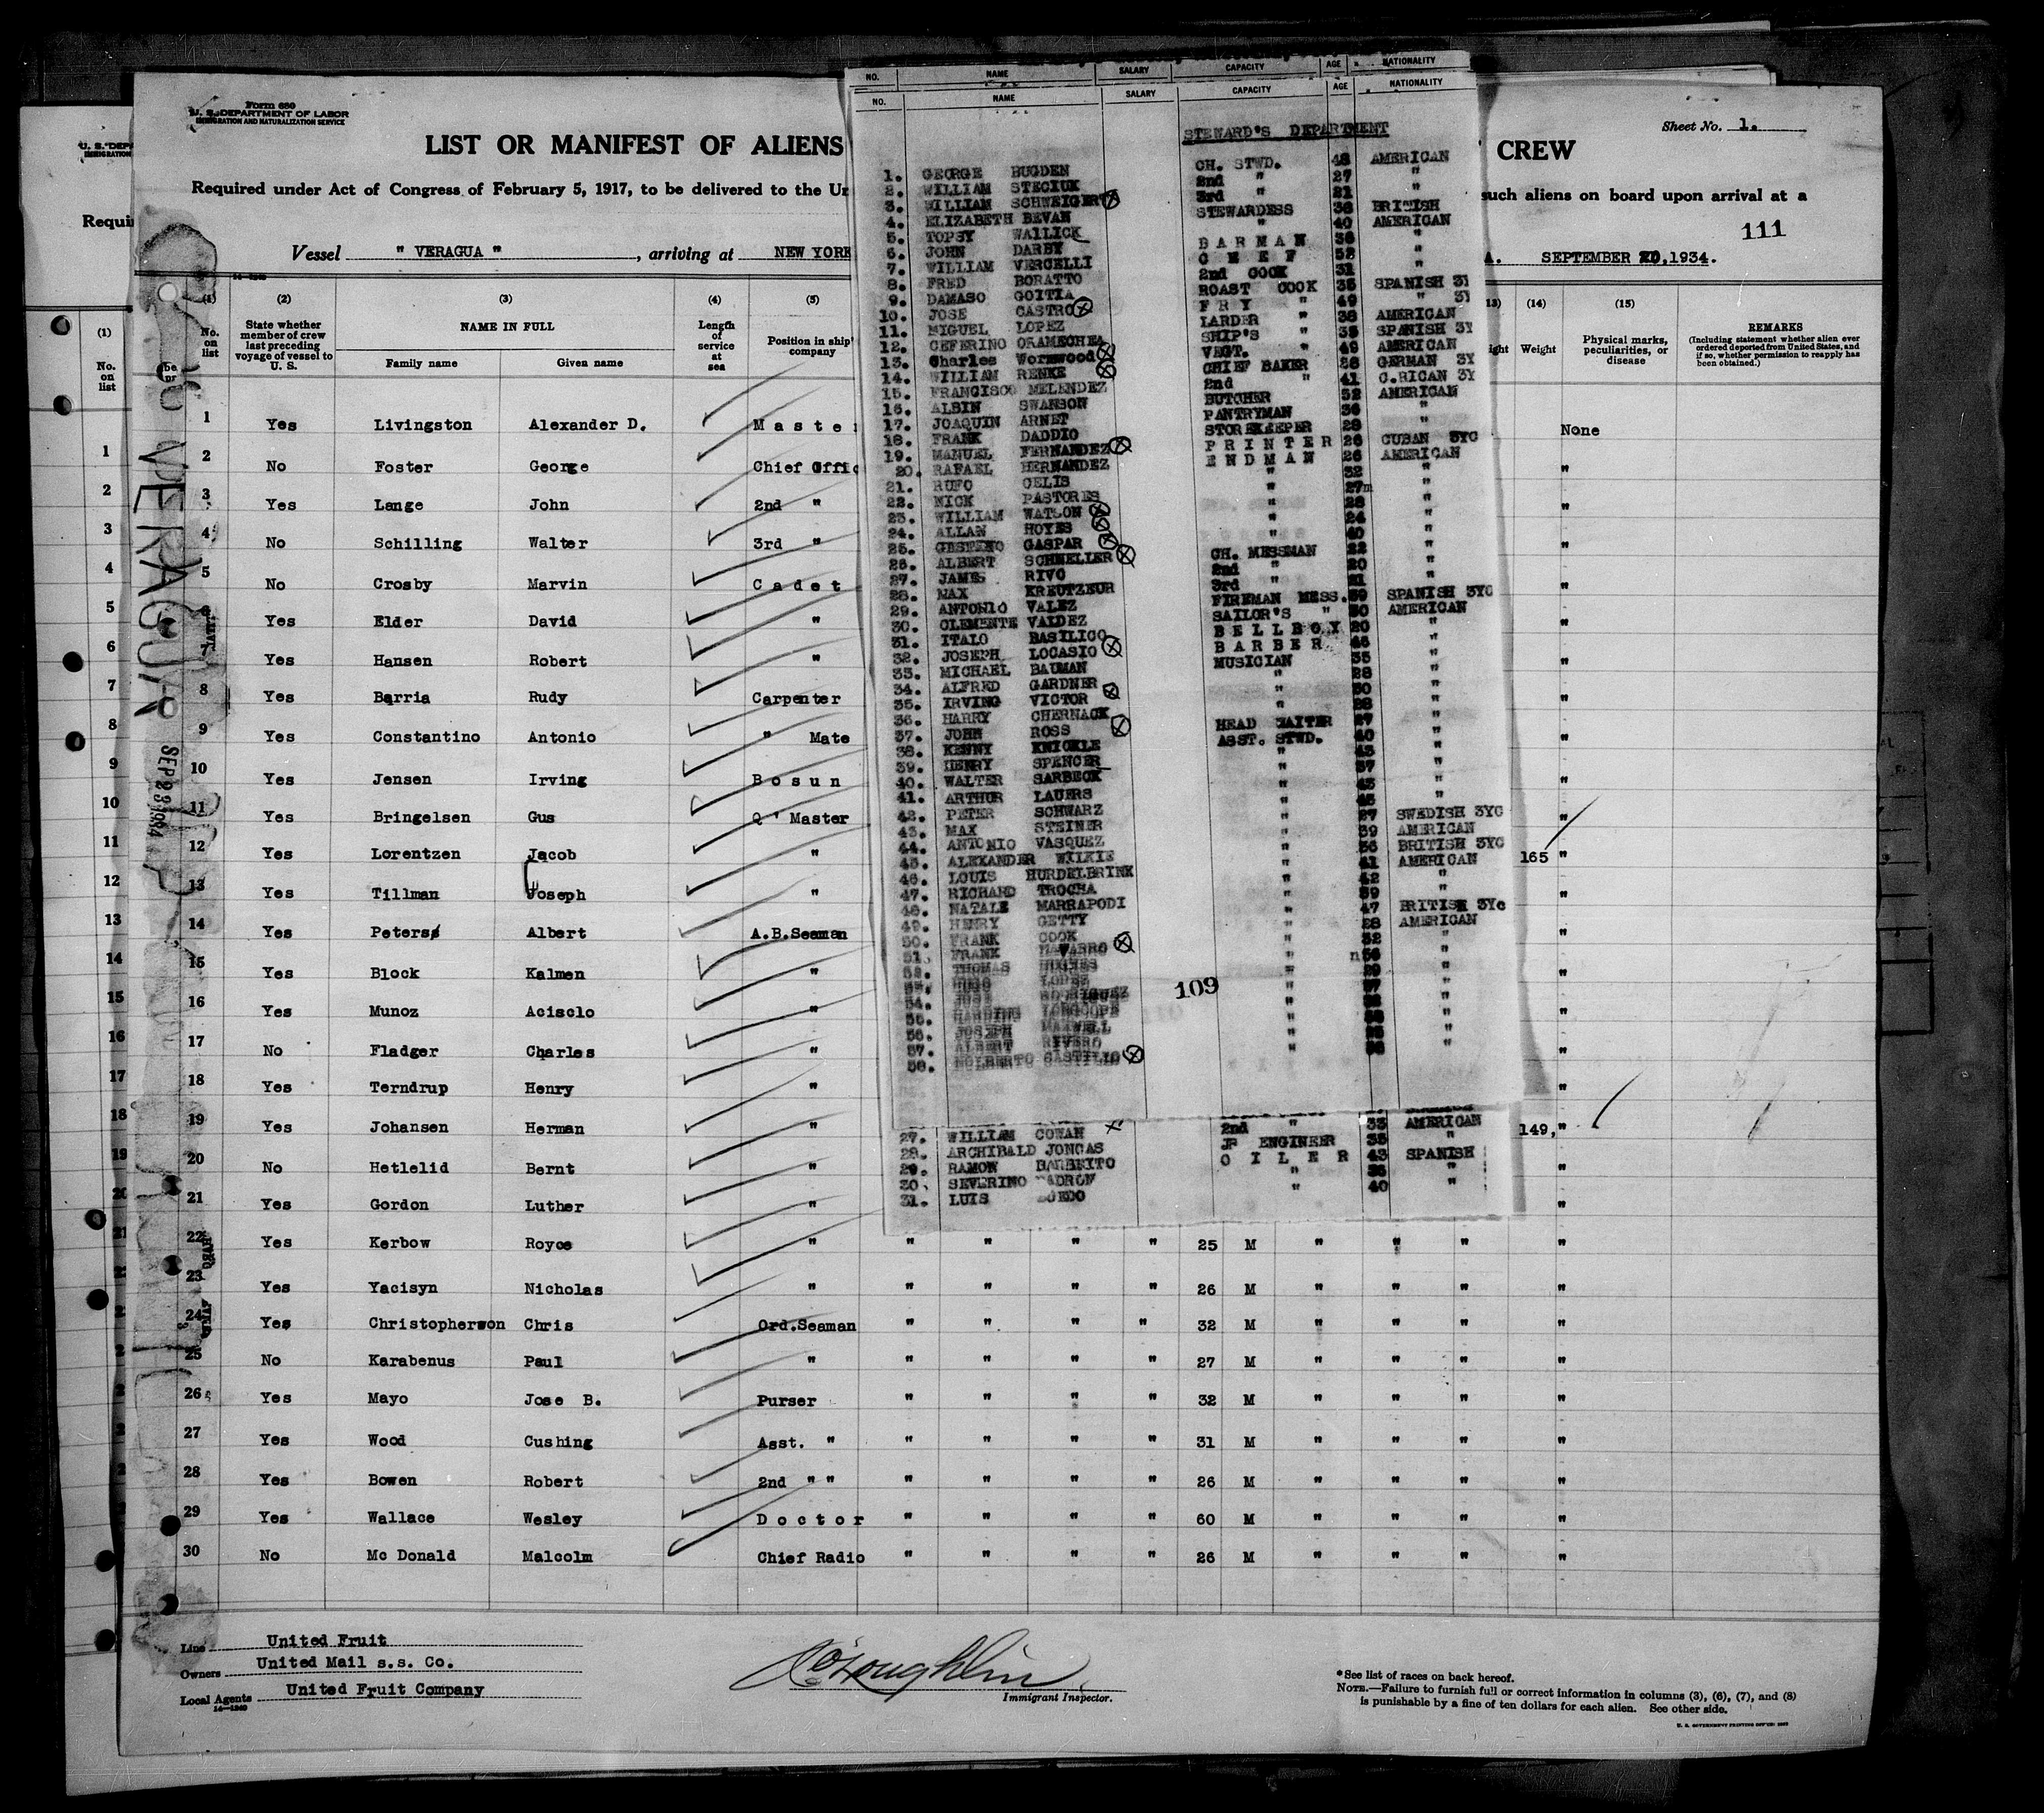 Form 680
U. S. DEPARTMENT OF LABOR
IMMIGRATION AND NATURALIZATION SERVICE
LIST OR MANIFEST OF ALIENS
CREW
Sheet No. 1.
Required under Act of Congress of February 5, 1917, to be delivered to the
such aliens on board upon arrival at a
111
Vessel " VERAGUA " , arriving at NEW YORK
SEPTEMBER 20,1934.
(1) (2) (3) (4) (5) (14) (15)
No. on list
State whether member of crew last preceding voyage of vessel to U. S.
NAME IN FULL
Family name Given name
Length of service at sea
Position in ship's company
Weight
Physical marks, peculiarities, or disease
REMARKS
(Including statement whether alien ever ordered deported from United States, and if so, whether permission to reapply has been obtained.)
1 Yes Livingston Alexander D. Maste None
2 No Foster George Chief Offic "
3 Yes Lange John 2nd " "
4 No Schilling Walter 3rd " "
5 No Crosby Marvin Cadet "
6 Yes Elder David " "
7 Yes Hansen Robert " "
8 Yes Barria Rudy Carpenter "
9 Yes Constantino Antonio " Mate "
10 Yes Jensen Irving Bosun "
11 Yes Bringelsen Gus Q' Master "
12 Yes Lorentzen Jacob " 165 "
13 Yes Tillman Joseph " "
14 Yes Peters Albert A.B.Seaman "
15 Yes Block Kalmen " "
16 Yes Munoz Acisclo " "
17 No Fladger Charles " "
18 Yes Terndrup Henry " "
19 Yes Johansen Herman " 149, "
20 No Hetlelid Bernt " "
21 Yes Gordon Luther " "
22 Yes Kerbow Royce " " " " " 25 M " " " "
23 Yes Yacisyn Nicholas " " " " " 26 M " " " "
24 Yes Christopherson Chris Ord.Seaman " " " " 32 M " " " "
25 No Karabenus Paul " " " " " 27 M " " " "
26 Yes Mayo Jose B. Purser " " " " 32 M " " " "
27 Yes Wood Cushing Asst. " " " " " 31 M " " " "
28 Yes Bowen Robert 2nd " " " " " " 26 M " " " "
29 Yes Wallace Wesley Doctor " " " " 60 M " " " "
30 No Mc Donald Malcolm Chief Radio " " " " 26 M " " " "
Line United Fruit
Owners United Mail s.s. Co.
Local Agents United Fruit Company
14-1240
O'Loughlin
Immigrant Inspector.
*See list of races on back hereof.
NOTE.—Failure to furnish full or correct information in columns (3), (6), (7), and (8)
is punishable by a fine of ten dollars for each alien. See other side.
U. S. GOVERNMENT PRINTING OFFICE
VERAGUA
NO. NAME SALARY CAPACITY AGE NATIONALITY
NO. NAME SALARY CAPACITY AGE NATIONALITY
STEWARD'S DEPARTMENT
1. GEORGE BUGDEN CH. STWD. 48 AMERICAN
2. WILLIAM STECIUK 2nd " 27 "
3. WILLIAM SCHWEIGERT 3rd " 21 "
4. ELIZABETH BEVAN STEWARDESS 38 BRITISH
5. TOPSY WALLICK " 40 AMERICAN
6. JOHN DARBY BARMAN 36 "
7. WILLIAM VERCELLI CHEF 52 "
8. FRED BORATTO 2nd COOK 31 "
9. DAMASO GOITIA ROAST COOK 35 SPANISH 3Y
10. JOSE CASTRO FRY " 49 " 3Y
11. MIGUEL LOPEZ LARDER " 38 AMERICAN
12. CEFERINO ORAMECHEA SHIP'S " 35 SPANISH 3Y
13. Charles Wormwood VEGT. " 49 AMERICAN
14. WILLIAM RENKE CHIEF BAKER 28 GERMAN 3Y
15. FRANCISCO MELENDEZ 2nd " 41 C.RICAN 3Y
16. ALBIN SWANSON BUTCHER 52 AMERICAN
17. JOAQUIN ARNET PANTRYMAN 36 "
18. FRANK DADDIO STOREKEEPER 28 "
19. MANUEL FERNANDEZ PRINTER 26 CUBAN 3YC
20. RAFAEL HERNANDEZ ENDMAN 26 AMERICAN
21. RUFO CELIS " 32 "
22. NICK PASTORES " 27m "
23. WILLIAM WATSON " 28 "
24. ALLAN HOYES " 24 "
25. GASPAR " 40 "
26. ALBERT SCHNELLER CH. MESSMAN 22 "
27. JAMES RIVO 2nd " 20 "
28. MAX KREUTZEUR 3rd " 21 "
29. ANTONIO VALEZ FIREMAN MESS. 39 SPANISH 3YC
30. CLEMENTE VALDEZ SAILOR'S " 30 AMERICAN
31. ITALO BASILICO BELLBOY 20 "
32. JOSEPH LOCASIO BARBER 46 "
33. MICHAEL BAUMAN MUSICIAN 35 "
34. ALFRED GARDNER " 28 "
35. IRVING VICTOR " 30 "
36. HARRY CHERNACK " 28 "
37. JOHN ROSS HEAD WAITER 27 "
38. KENNY KNICKLE ASST. STWD. 40 "
39. HENRY SPENCER " 43 "
40. WALTER SARBECK " 37 "
41. ARTHUR LAUERS " 43 "
42. PETER SCHWARZ " 45 "
43. MAX STEINER " 27 SWEDISH 3YC
44. ANTONIO VASQUEZ " 39 AMERICAN
45. ALEXANDER WILKIE " 36 BRITISH 3YC
46. LOUIS HURDELBRINK " 41 AMERICAN
47. RICHARD TROCHA " 42 "
48. NATALE MARRAPODI " 39 "
49. HENRY GETTY " 47 BRITISH 3Yc
50. FRANK COOK " 28 AMERICAN
51. FRANK NAVARRO " 32 "
52. THOMAS HUGHES " "
53. HUGO LOPEZ " 29 "
54. JOSE RODRIGUEZ " "
55. HARDING " "
56. JOSEPH MAXWELL " "
57. ALBERT RIVERO " "
58. NOLBERTO CASTILLO " "
109
27. WILLIAM COWAN 2nd " 33 AMERICAN
28. ARCHIBALD JONCAS JR ENGINEER 35 "
29. RAMON BARBEITO OILER 43 SPANISH
30. SEVERINO PADRON " 36 "
31. LUIS " 40 "